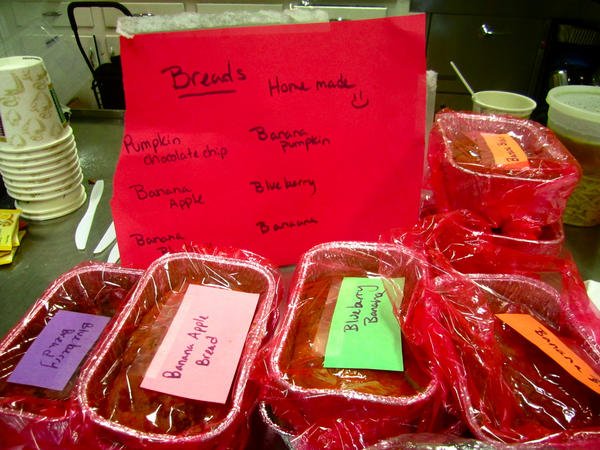 Breads
Home made
Pumpkin
chocolate chip
Banana
Pumpkin
Banana
Apple
Blueberry
Banana
Banaana
Blueberry
Bread
Banana Apple
Bread
Blueberry
Banana
Banana